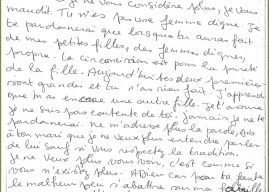 je ne vous considère plus, je vous
maudit. Tu n'es pas une femme digne. Je
te pardonnerai que lorsque tu auras fait
de mes petites filles, des femmes dignes,
propre. La circoncision est pour la pureté
de la fille. Aujourd'hui tes deux premières
sont grandes et tu n'as rien fait. J'apprend
que tu as encore une autre fille. Je t'assure
je ne suis pas contente de toi. Jamais je ne te
pardonnerai. Ne m'adresse plus la parole. Dis
à ton mari que je ne veux plus entendre parler
de lui sauf si vous respectez la tradition.
Je ne veux plus vous voir, c'est comme si
vous n'existez plus. A Dieu car pour ta faute
le malheur va s'abattre sur ma famille